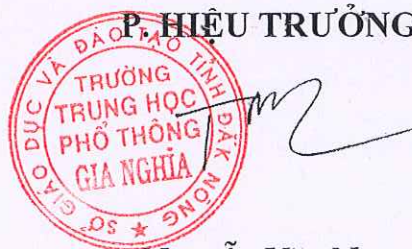 P. HIỆU TRƯỞNG
SỞ GIÁO DỤC VÀ ĐÀO TẠO TỈNH ĐĂK NÔNG
TRƯỜNG
TRUNG HỌC
PHỔ THÔNG
GIA NGHĨA